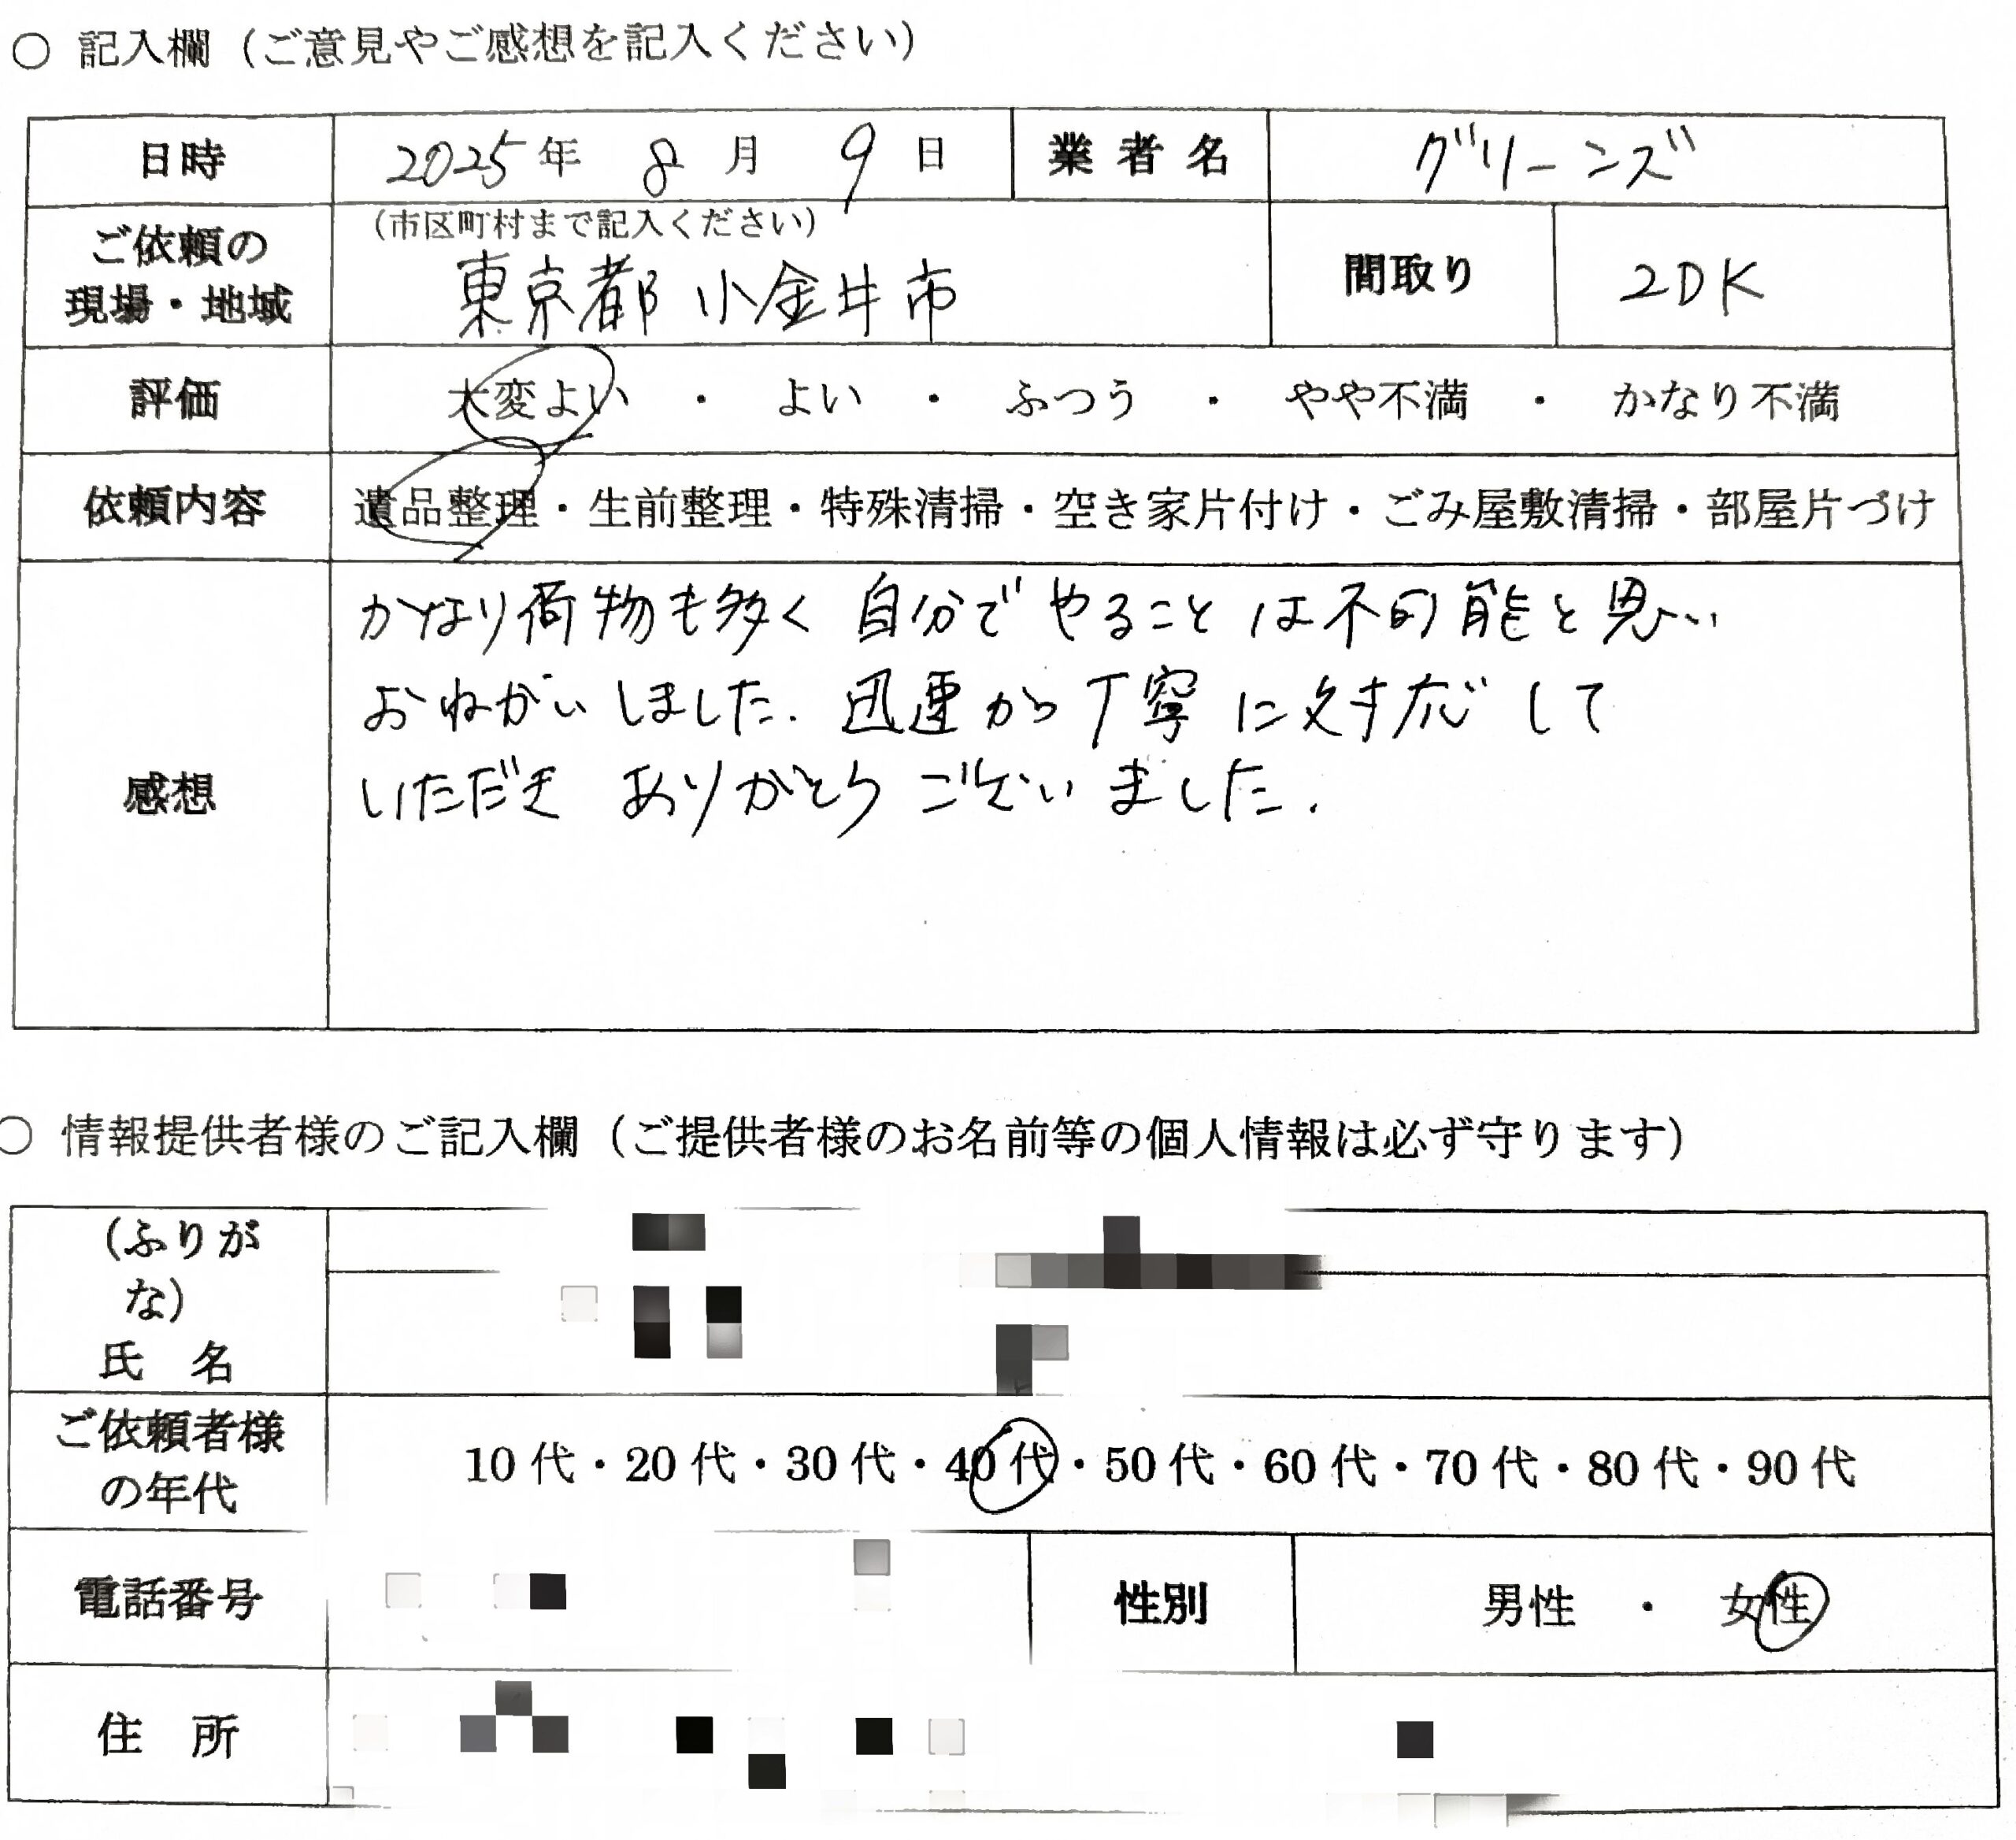 ○ 記入欄（ご意見やご感想を記入ください）
日時 2025年 8月 9日 業者名 グリーンズ
ご依頼の現場・地域 （市区町村まで記入ください） 間取り 2DK
東京都 小金井市
評価 大変よい ・ よい ・ ふつう ・ やや不満 ・ かなり不満
依頼内容 遺品整理・生前整理・特殊清掃・空き家片付け・ごみ屋敷清掃・部屋片づけ
感想
かなり荷物も多く 自分でやることは不可能と思い
おねがいしました. 迅速かつ丁寧に対応して
いただき ありがとうございました.
○ 情報提供者様のご記入欄（ご提供者様のお名前等の個人情報は必ず守ります）
（ふりが
な）
氏 名
ご依頼者様
の年代
10代・20代・30代・40代・50代・60代・70代・80代・90代
電話番号 性別 男性 ・ 女性
住 所